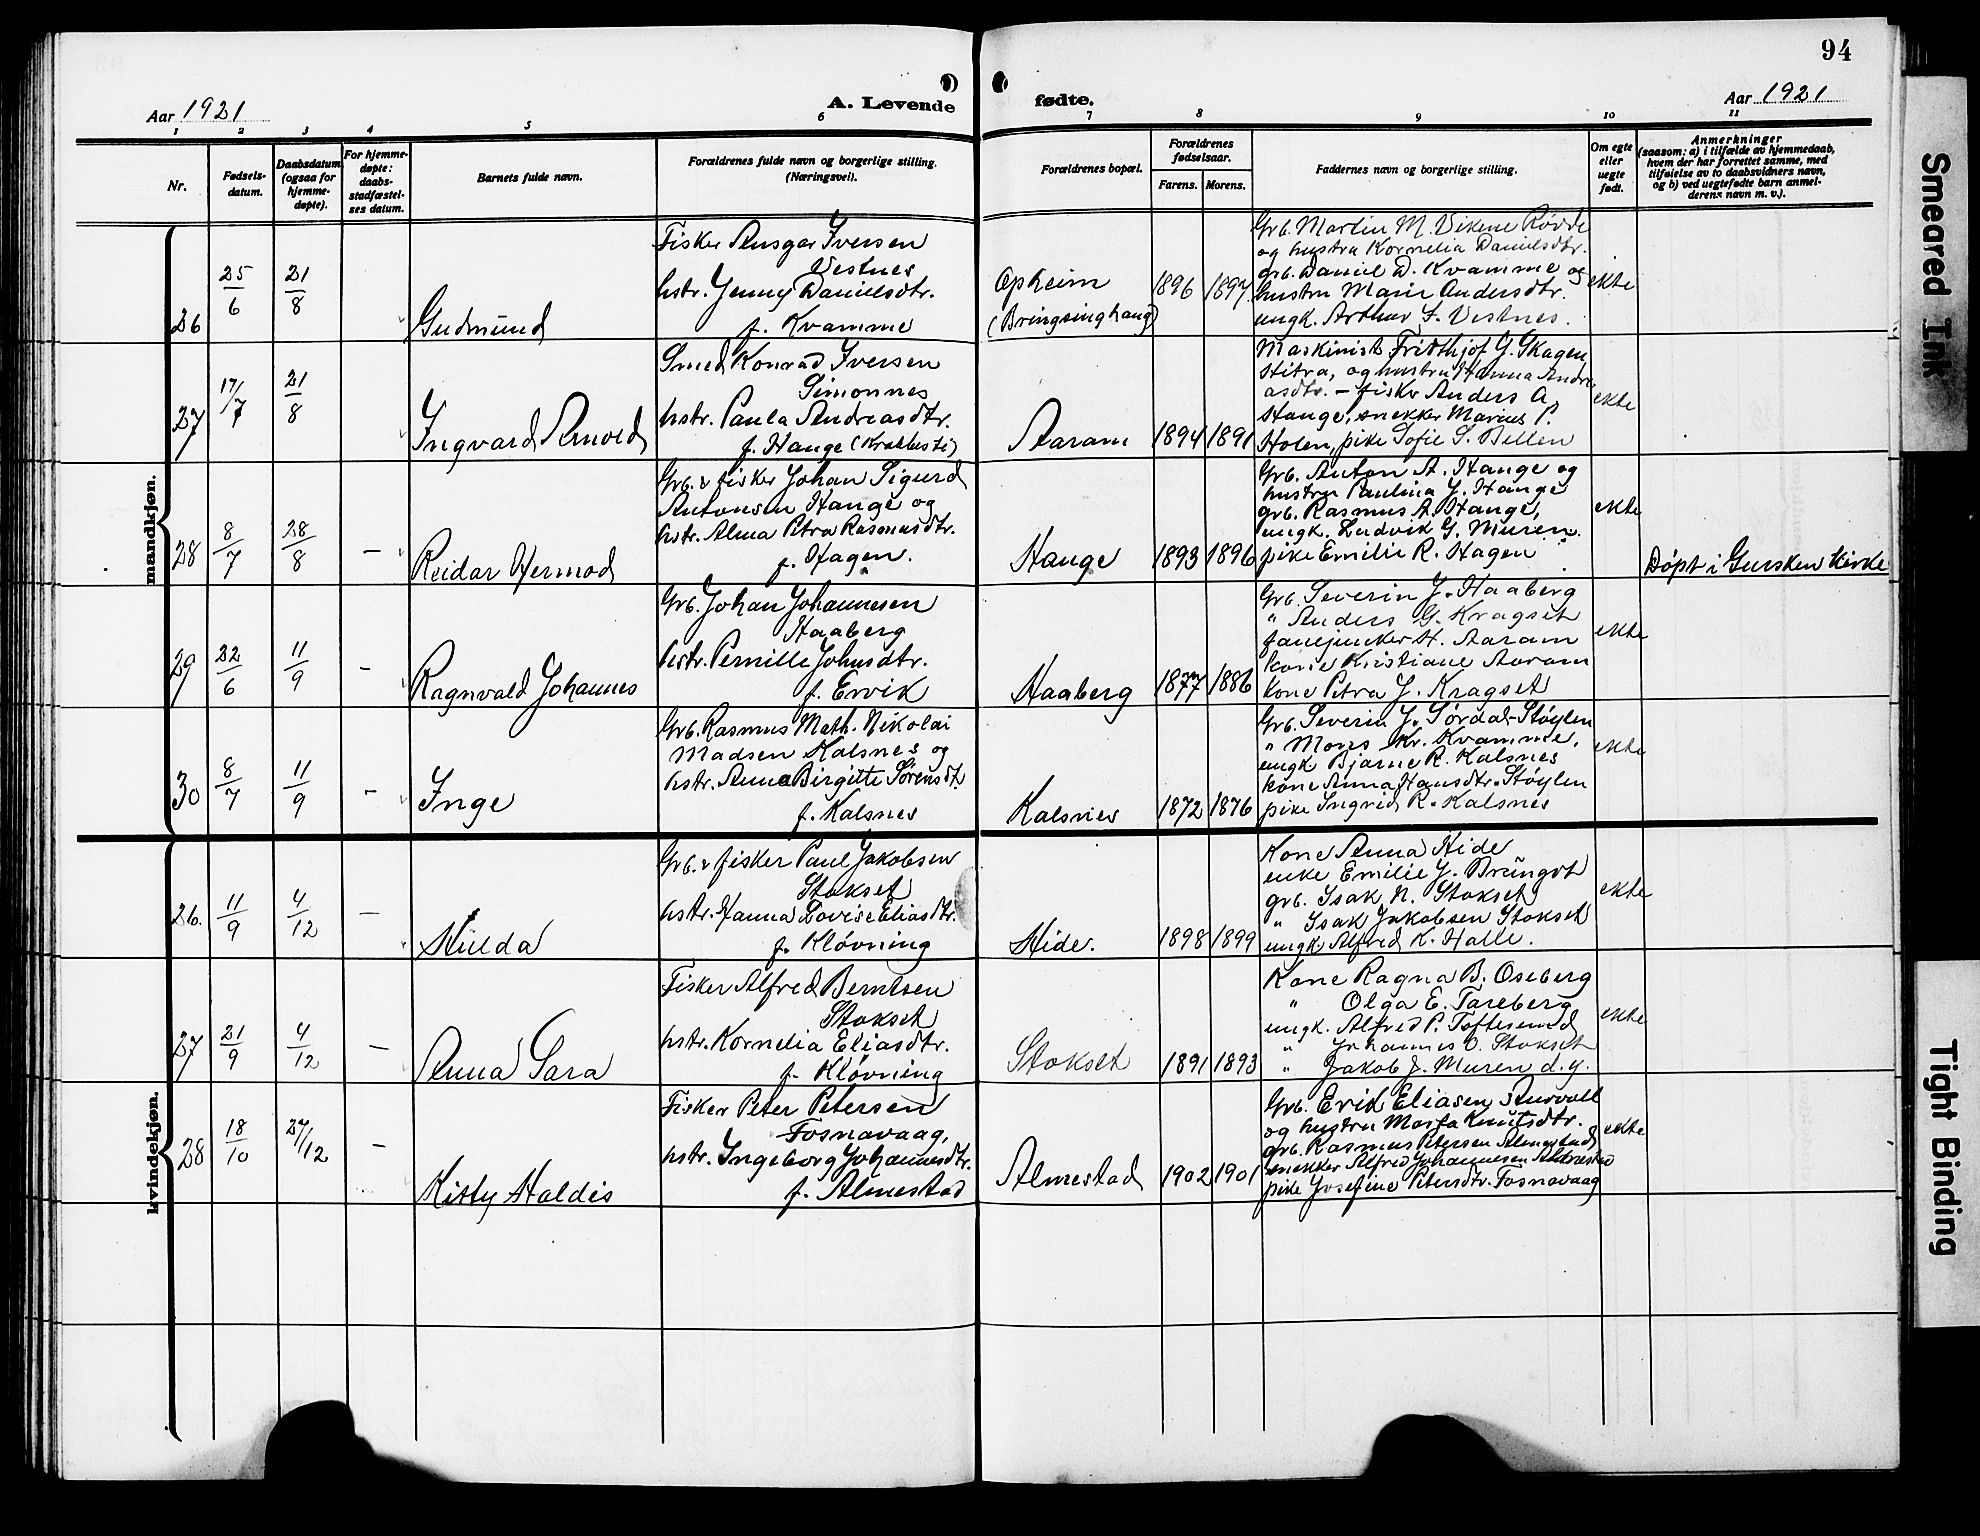 94
Aar 1921
A. Levende
fødte.
Aar 1921
1 2 3 4 5 6 7 8 9 10 11
Nr.
Fødsels-
datum.
Daabsdatum
(ogsaa for
hjemme-
døpte).
For hjemme-
døpte:
daabs-
stadfæstel-
ses datum.
Barnets fulde navn.
Forældrenes fulde navn og borgerlige stilling.
(Næringsvei).
Forældrenes bopæl.
Forældrenes
fødselsaar.
Farens. Morens.
Faddernes navn og borgerlige stilling.
Om egte
eller
uegte
født.
Anmerkninger
(saasom: a) i tilfælde av hjemmedaab,
hvem der har forrettet samme, med
tilføielse av to daabsvidners navn,
og b) ved uegtefødte barn anmel-
derens navn m. v.).
mandkjøn.
26
25/6
21/8
Gudmund
Fisker Ansgar Iversen
Vestnes
hstr. Jenny Danielsdtr.
f. Kvamme
Opheim
(Bringsinghaug)
1896 1897
Grb. Martin M. Vikene Røvde
og hustru Kornelia Danielsdtr.
grb. Daniel D. Kvamme og
hustru Marie Andersdtr.
ungk. Arthur I. Vestnes.
ekte
27
17/7
21/8
Ingvard Arnold
Smed Konrad Iversen
Simonnes
hstr. Paula Andreasdtr.
f. Hauge (Krakhesti)
Aaram
1894 1891
Maskinist Fridthjof G. Skagen,
Stitra, og hustru Hanna Andre
asdtr. – fisker Anders A.
Hauge, snekker Marius P.
Holen, pike Sofie S. Bellen
ekte
28
8/7
28/8
–
Reidar Hermod
Grb. & fisker Johan Sigurd
Antonsen Hauge og
hstr. Alma Petra Rasmusdtr.
f. Hagen.
Hauge
1893 1896
Grb. Anton A. Hauge og
hustru Paulina J. Hauge
grb. Rasmus A. Hauge,
ungk. Ludvik G. Muren
pike Emilie R. Hagen
ekte
Døpt i Gursken kirke
29
22/6
11/9
–
Ragnvald Johannes
Grb. Johan Johannesen
Haaberg
hstr. Pernille Johnsdtr.
f. Ervik
Haaberg
1877 1886
Grb. Severin J. Haaberg
" Anders G. Kragset
fanejunker H. Aaram
kone Kristiane Aaram
kone Petra J. Kragset
ekte
30
8/7
11/9
–
Inge
Grb. Rasmus Math. Nikolai
Madsen Kalsnes og
hstr. Anna Birgitte Sørensdt.
f. Kalsnes
Kalsnes
1872 1876
Grb. Severin J. Sørdal-Støylen
" Mons Kr. Kvamme,
ungk Bjarne R. Kalsnes
kone Anna Hansdtr. Støylen
pike Ingrid R. Kalsnes
ekte
kvindekjøn.
26.
11/9
4/12
–
Hulda
Grb. & fisker Paul Jakobsen
Stokset
hstr. Hanna Lovise Eliasdtr.
f. Kløvning
Hide.
1898 1899
Kone Anna Hide
enke Emilie J. Brüngot
grb. Isak N. Stokset
" Isak Jakobsen Stokset
ungk. Alfred K. Halle.
ekte
27
21/9
4/12
–
Anna Sara
Fisker Alfred Berntsen
Stokset
hstr. Kornelia Eliasdtr.
f. Kløvning
Stokset
1891 1893
Kone Ragna B. Oseberg
" Olga E. Tareberg
ungk. Alfred P. Toftesund
" Johannes O. Stokset
" Jakob J. Muren d.y.
ekte
28
18/10
27/12
–
Kitty Haldis
Fisker Peter Petersen
Fosnavaag,
hstr. Ingeborg Johannesdtr.
f. Almestad
Almestad
1902 1901
Grb. Erik Eliasen
og hustru Marta Knutsdtr.
grb. Rasmus Petersen Almestad
snekker Alfred Johannesen Almestad
pike Josefine Petersdtr. Fosnavaag
ekte
Smeared Ink
Tight Binding